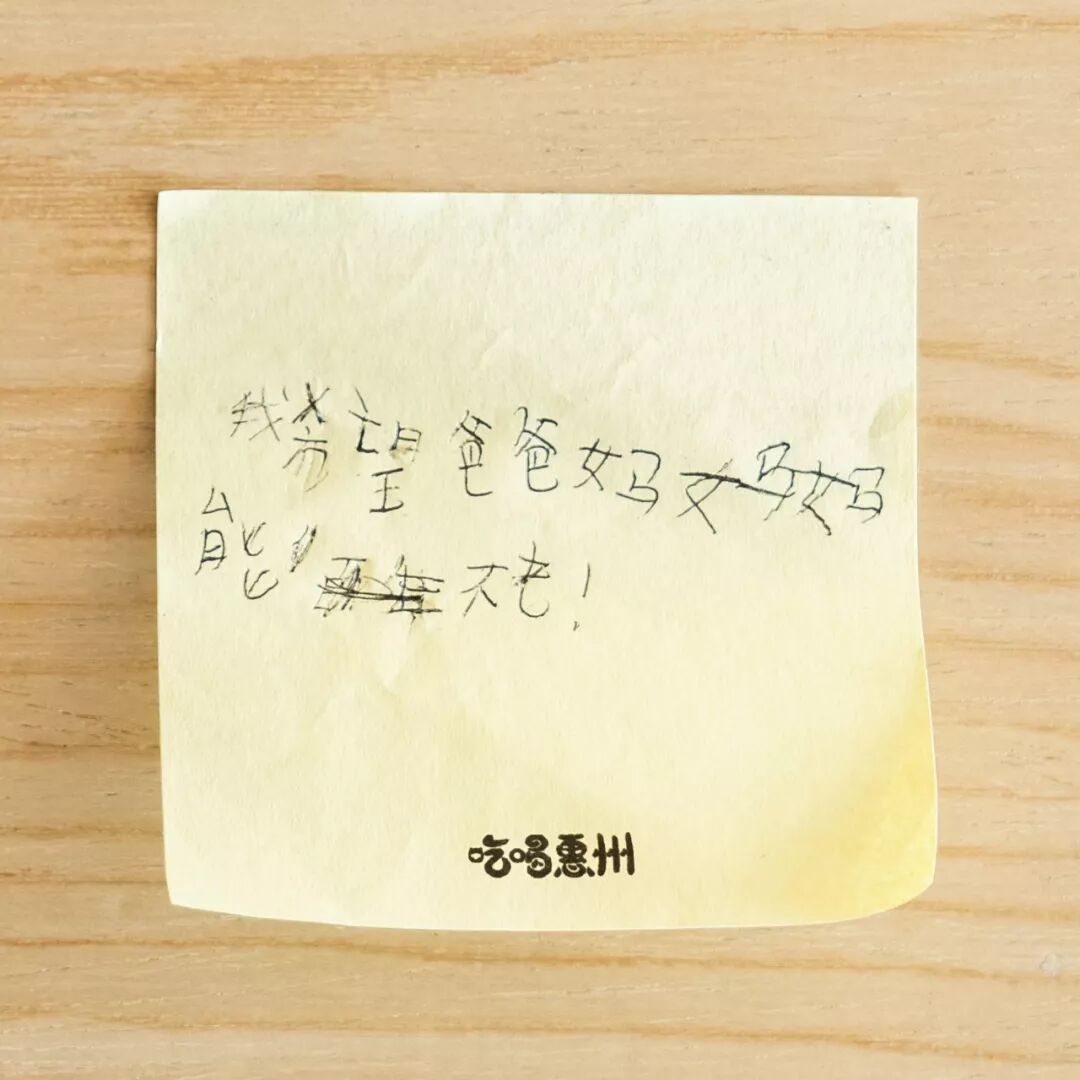 我希望爸爸妈妈妈
能不老!
吃喝惠州